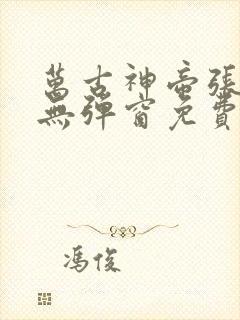 萬古神帝張
無彈窗免費
馮俊